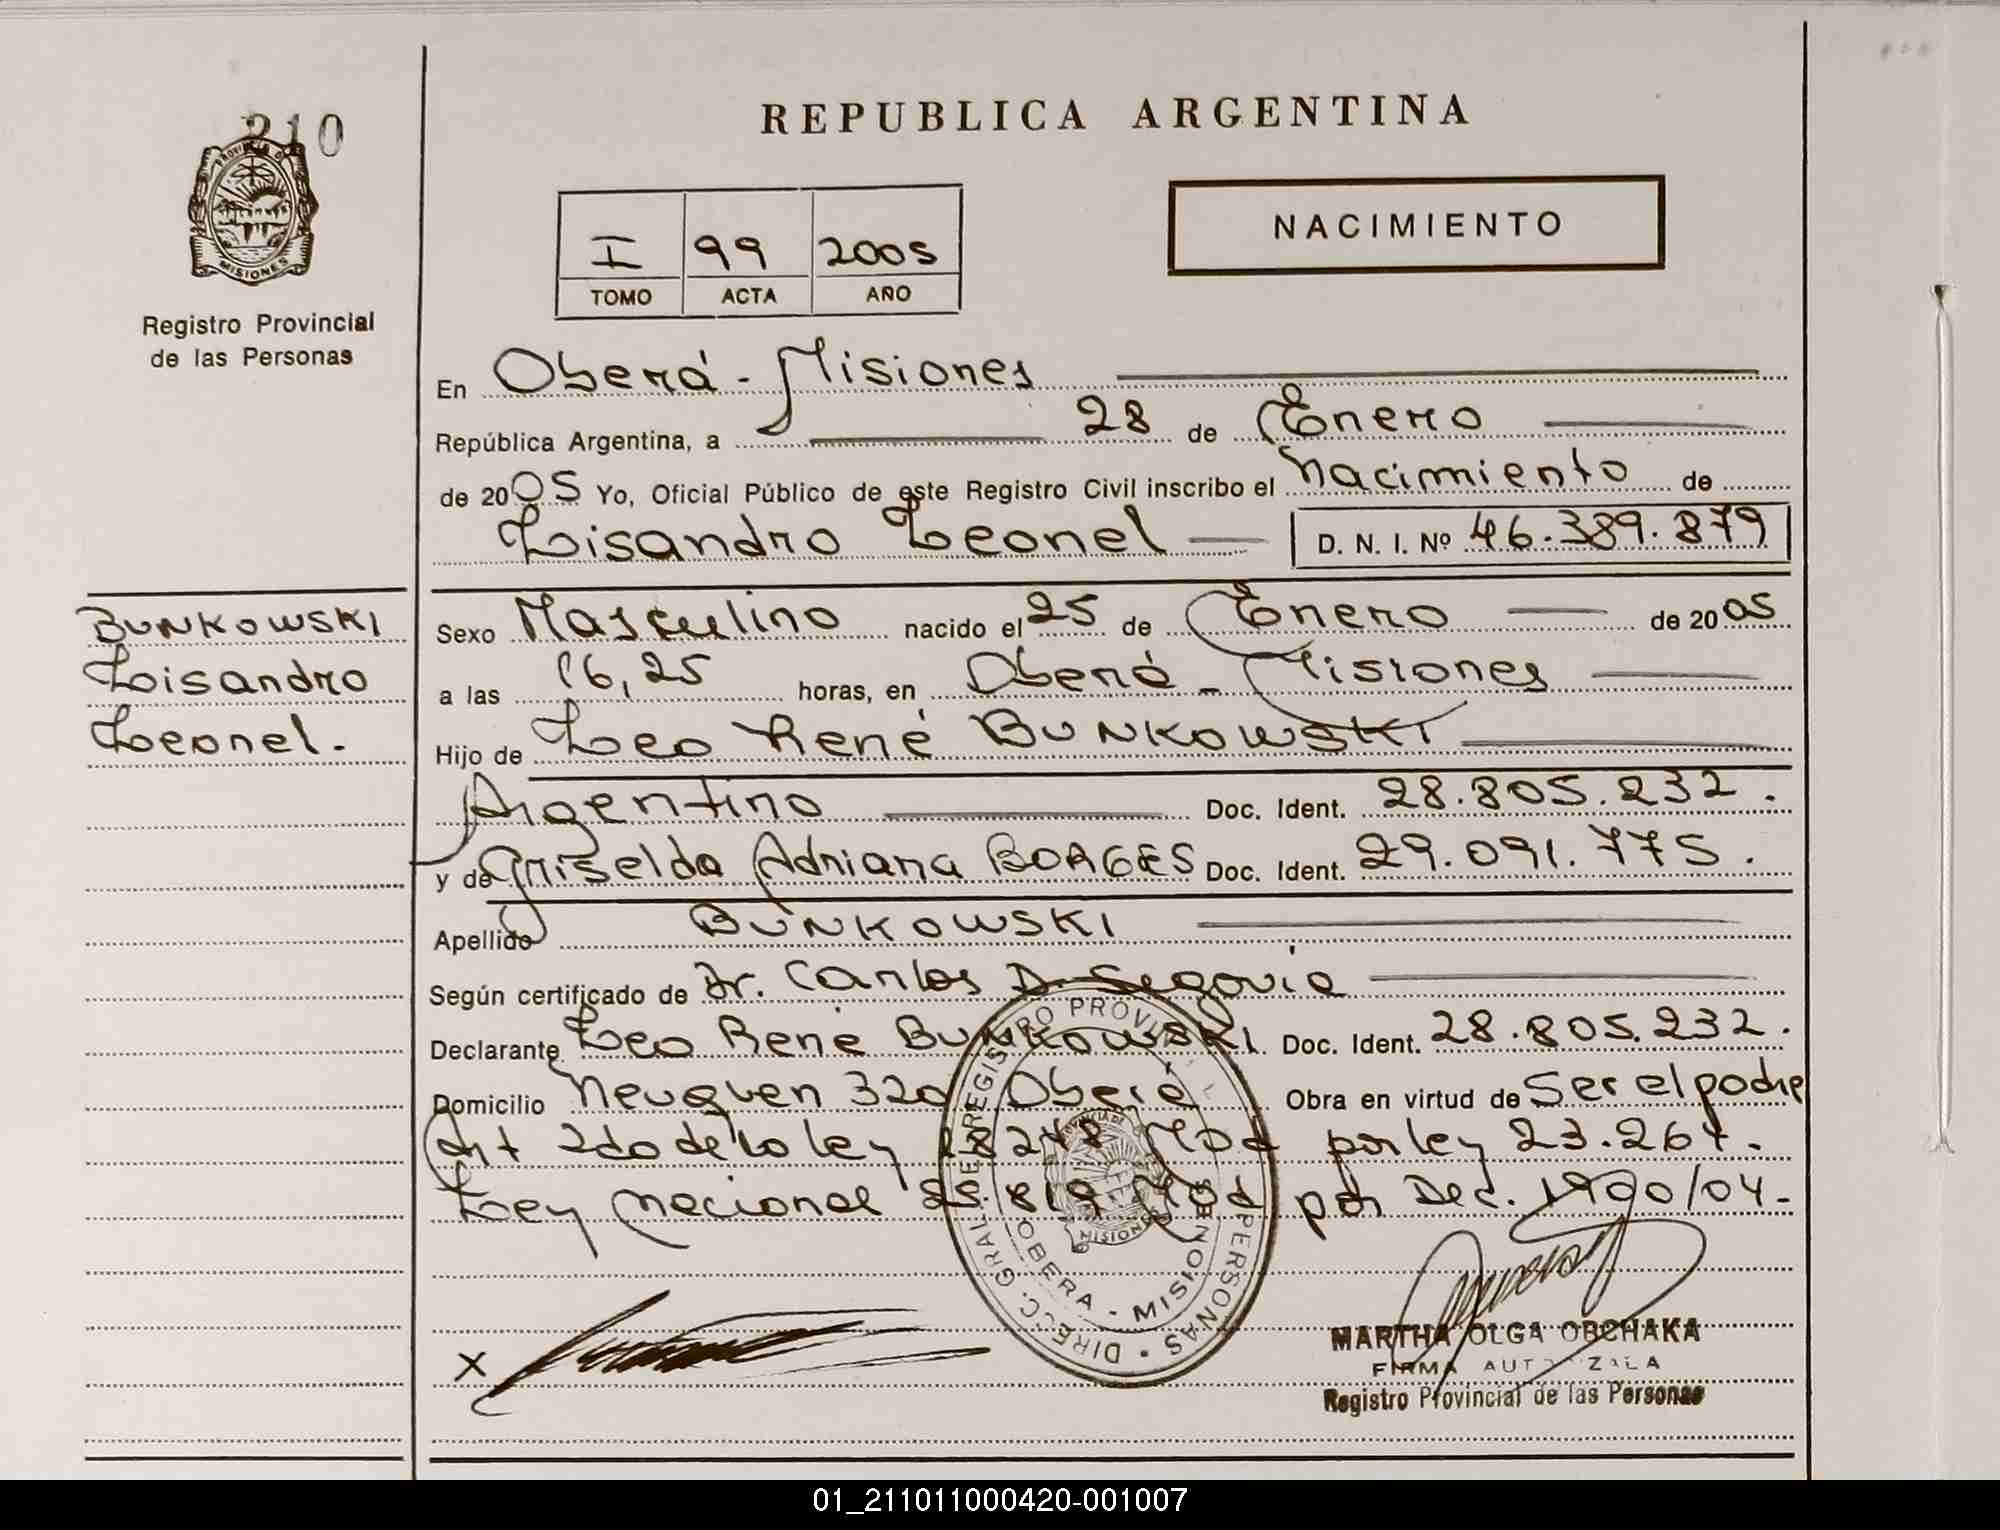 210
PROVINCIA DE
MISIONES
Registro Provincial
de las Personas
REPUBLICA ARGENTINA
I 99 2005
TOMO ACTA AÑO
NACIMIENTO
En Oberá - Misiones
República Argentina, a 28 de Enero
de 2005 Yo, Oficial Público de este Registro Civil inscribo el Nacimiento de
Lisandro Leonel D. N. I. Nº 46.389.879
BUNKOWSKI
Lisandro
Leonel.-
Sexo Masculino nacido el 25 de Enero de 2005
a las 16,25 horas, en Oberá - Misiones
Hijo de Leo René BUNKOWSKI
Argentino Doc. Ident. 28.805.232.
y de Griselda Adriana BORGES Doc. Ident. 29.091.775.
Apellido BUNKOWSKI
Según certificado de Dr. Carlos D. Segovia
Declarante Leo René BUNKOWSKI. Doc. Ident. 28.805.232.
Domicilio Neuquen 320 Oberá Obra en virtud de Ser el padre
Art 2do de la ley 18248 Mod por ley 23.264.
Ley Nacional 25.819 Mod por Dec. 1900/04.-
DIRECC. GRAL. DEL REGISTRO PROVINCIAL PERSONAS
OBERA - MISIONES
MISIONES
X
MARTHA OLGA OBCHAKA
FIRMA AUTORIZADA
Registro Provincial de las Personas
01_211011000420-001007